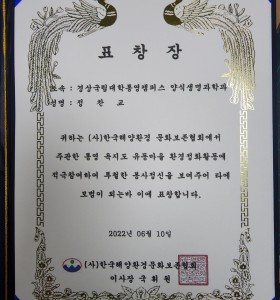 표 창 장
소속 : 경상국립대학통영캠퍼스 양식생명과학과
성명 : 정 찬 교
위하는 (사)한국해양환경 문화보존협회에서
주관한 통영 욕지도 유동마을 환경정화활동에
적극참여하여 투철한 봉사정신을 보여주어 타에
모범이 되는바 이에 표창합니다.
2022년 06월 10일
(사)한국해양환경문화보존협회
이사장 국 희 원